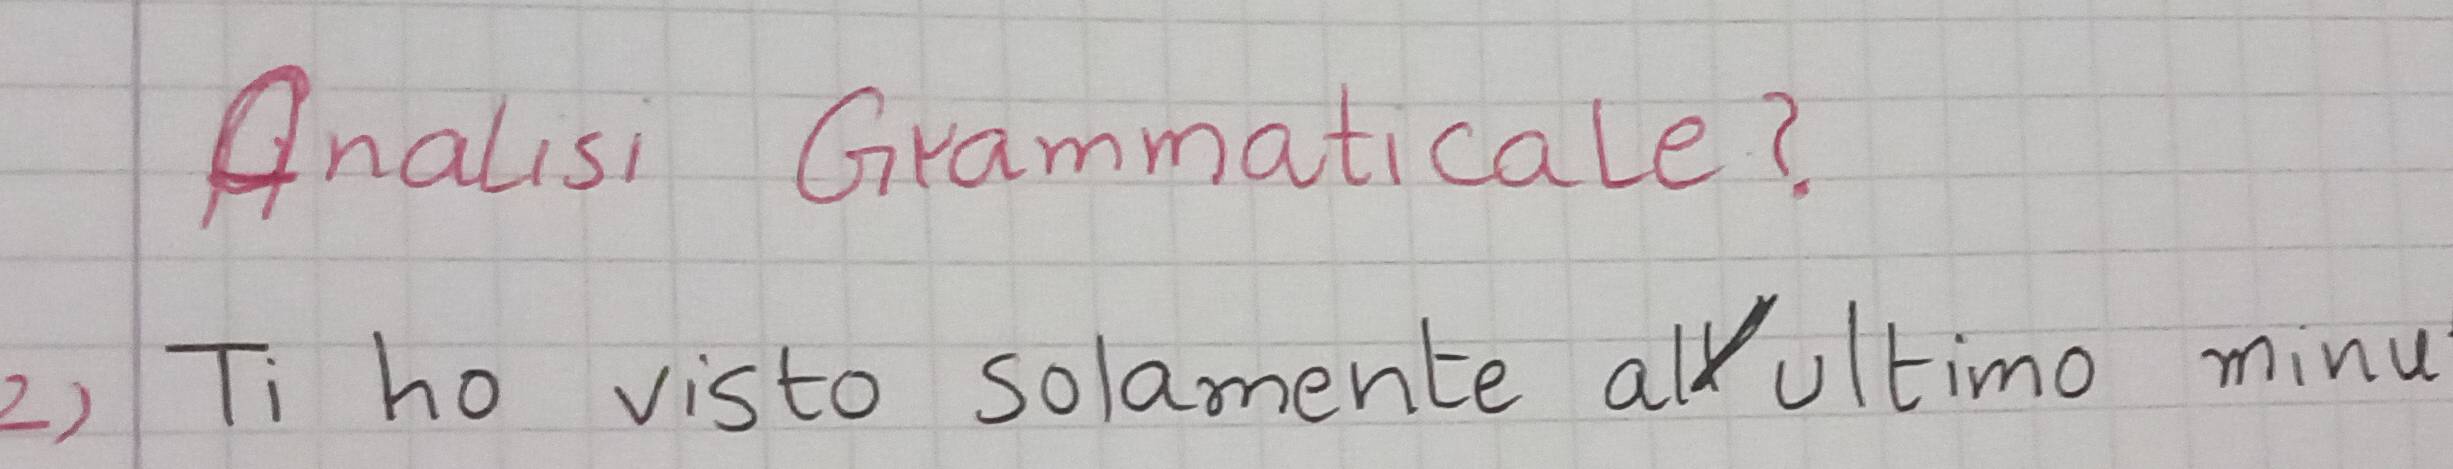 Analisi Grammaticale?
2) Ti ho visto solamente all'ultimo minu